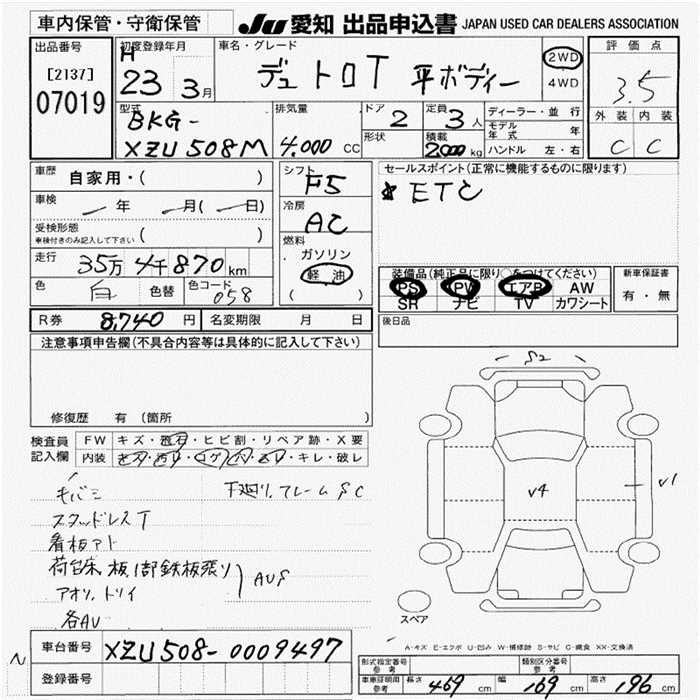 車内保管・守衛保管
JU 愛知 出品申込書 JAPAN USED CAR DEALERS ASSOCIATION
出品番号
[2137]
07019
初度登録年月
H
23 3月
車名・グレード
デュトロT 平ボディー
2WD
4WD
評価点
3.5
外装 内装
C C
型式
BKG-
XZU508M
排気量
4.000 CC
ドア
2
定員
3人
形状
積載
2000kg
ディーラー・並行
モデル年式 年
ハンドル 左・右
車歴
自家用・( )
車検 年 月( 日)
受検形態
車検付きのみ記入して下さい ( )
走行 35万4千870km
色 白 色替 色コード 058
シフト
F5
冷房
AC
燃料
ガソリン
軽油
( )
セールスポイント(正常に機能するものに限ります)
ETC
装備品(純正品に限り○をつけてください)
PS PW エアB AW
SR ナビ TV カワシート
新車保証書
有・無
R券 8,740 円 名変期限 月 日
後日品
注意事項申告欄(不具合内容等は具体的に記入して下さい)
修復歴 有(箇所
検査員
記入欄
FW キズ・飛石・ヒビ割・リペア跡・X要
内装 キズ・汚れ・コゲ・穴・スレ・キレ・破レ
下廻り、フレームSC
スタッドレスT
看板アト
荷台床板1部鉄板張り
アオリ、トリイ
各AU
AUS
S2
V4
V1
スペア
A-キズ E-エクボ U-凹み W-補修跡 S-サビ C-腐食 XX-交換済
車台番号 XZU508-0009497
登録番号
型式指定番号
参考
類別区分番号
参考
車庫証明用
参考
長さ 469 cm 幅 169 cm 高さ 196 cm